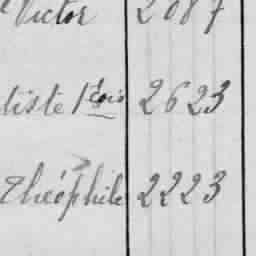 Victor 2087
tiste fçois 2623
Théophile 2223